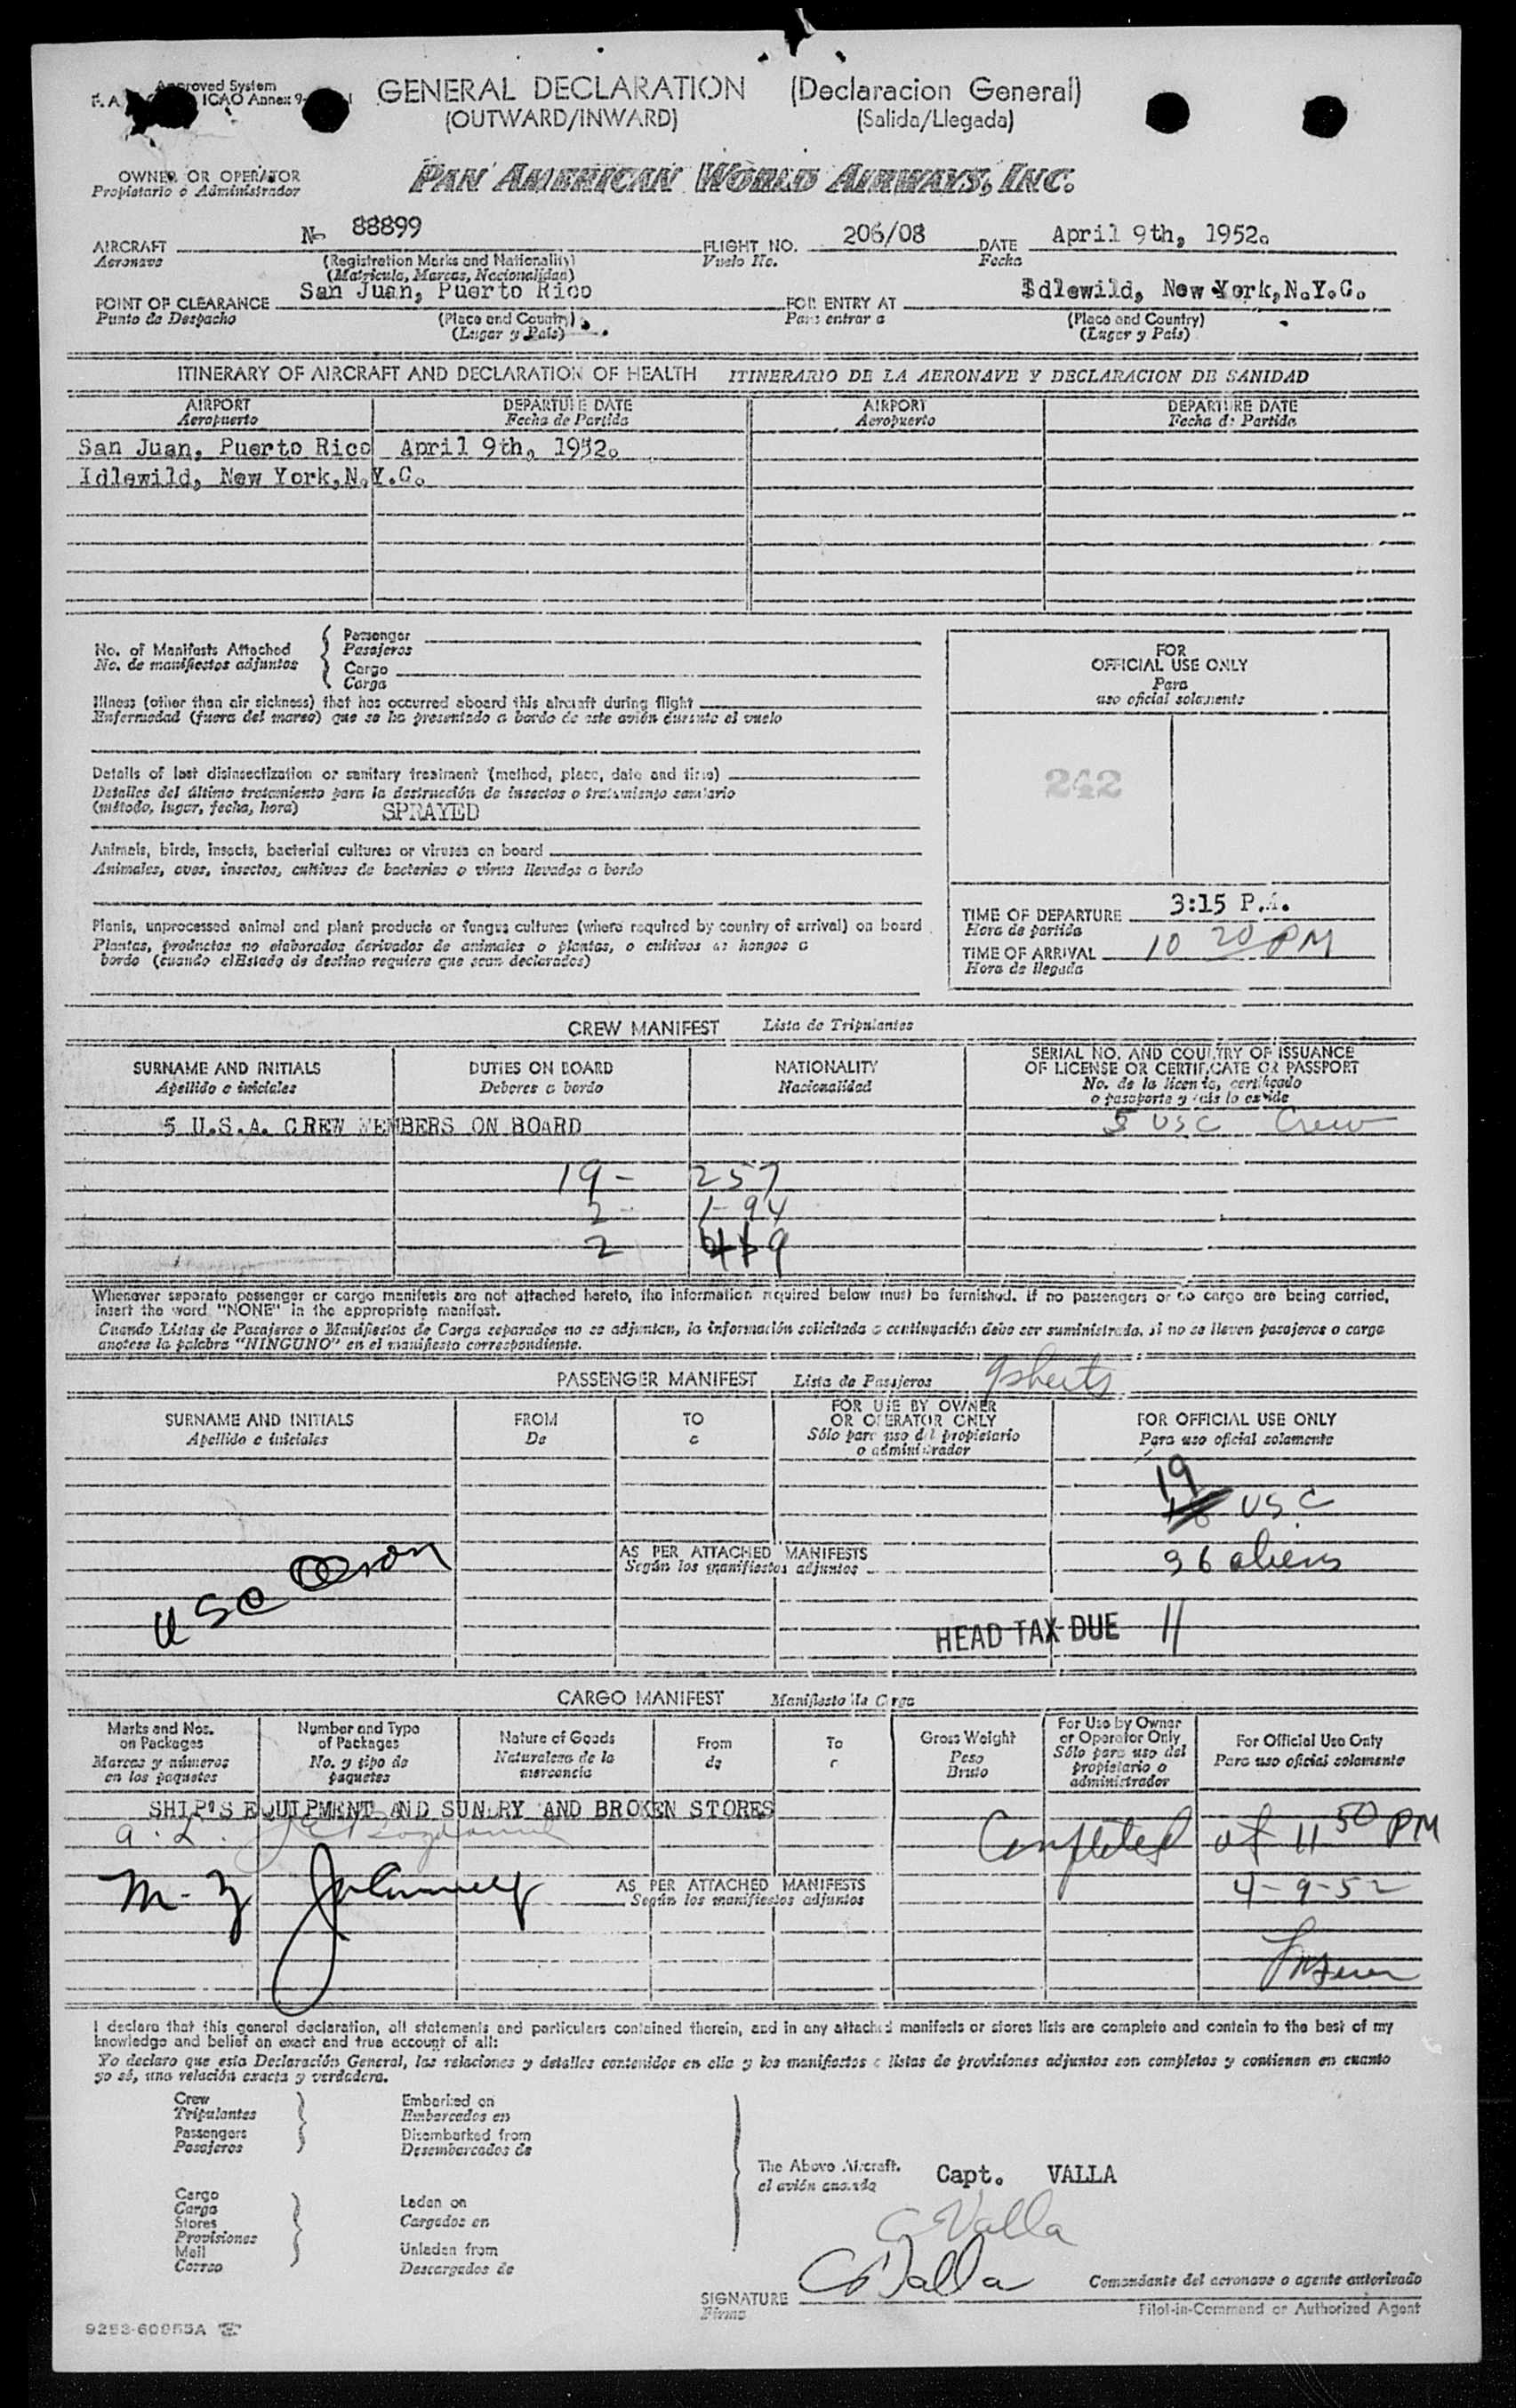 Approved System
ICAO Annex 9-
GENERAL DECLARATION (Declaracion General)
(OUTWARD/INWARD) (Salida/Llegada)
OWNER OR OPERATOR
Propietario o Administrador
PAN AMERICAN WORLD AIRWAYS, INC.
AIRCRAFT N- 88899 FLIGHT NO. 206/08 DATE April 9th, 1952.
Aeronave (Registration Marks and Nationality) Vuelo No. Fecha
(Matricula, Marcas, Nacionalidad)
POINT OF CLEARANCE San Juan, Puerto Rico FOR ENTRY AT Idlewild, New York,N.Y.C.
Punto de Despacho (Place and Country) Para entrar a (Place and Country)
(Lugar y Pais) (Lugar y Pais)
ITINERARY OF AIRCRAFT AND DECLARATION OF HEALTH ITINERARIO DE LA AERONAVE Y DECLARACION DE SANIDAD
AIRPORT DEPARTURE DATE AIRPORT DEPARTURE DATE
Aeropuerto Fecha de Partida Aeropuerto Fecha de Partida
San Juan, Puerto Rico April 9th, 1952.
Idlewild, New York,N.Y.C.
No. of Manifests Attached
No. de manifiestos adjuntos
Passenger
Pasajeros
Cargo
Carga
Illness (other than air sickness) that has occurred aboard this aircraft during flight
Enfermedad (fuera del mareo) que se ha presentado a bordo de este avión durante el vuelo
Details of last disinsectization or sanitary treatment (method, place, date and time)
Detalles del último tratamiento para la destrucción de insectos o tratamiento sanitario
(método, lugar, fecha, hora) SPRAYED
Animals, birds, insects, bacterial cultures or viruses on board
Animales, aves, insectos, cultivos de bacterias o virus llevados a bordo
Plants, unprocessed animal and plant products or fungus cultures (where required by country of arrival) on board
Plantas, productos no elaborados derivados de animales o plantas, o cultivos de hongos a
bordo (cuando el Estado de destino requiera que sean declarados)
FOR
OFFICIAL USE ONLY
Para
uso oficial solamente
242
TIME OF DEPARTURE 3:15 P.M.
Hora de partida
TIME OF ARRIVAL 10 20 PM
Hora de llegada
CREW MANIFEST Lista de Tripulantes
SURNAME AND INITIALS DUTIES ON BOARD NATIONALITY SERIAL NO. AND COUNTRY OF ISSUANCE
OF LICENSE OR CERTIFICATE OR PASSPORT
Apellido e iniciales Deberes a bordo Nacionalidad No. de la licencia, certificado
o pasaporte y pais lo expide
5 U.S.A. CREW MEMBERS ON BOARD 5 USC Crew
19 - 257
2 - 1-94
2
Whenever separate passenger or cargo manifests are not attached hereto, the information required below must be furnished. If no passengers or no cargo are being carried,
insert the word "NONE" in the appropriate manifest.
Cuando Listas de Pasajeros o Manifiestos de Carga separados no se adjuntan, la información solicitada a continuación debe ser suministrada. si no se lleven pasajeros o carga
anotese la palabra "NINGUNO" en el manifiesto correspondiente.
PASSENGER MANIFEST Lista de Pasajeros 9 sheets
SURNAME AND INITIALS FROM TO FOR USE BY OWNER
OR OPERATOR ONLY FOR OFFICIAL USE ONLY
Apellido e iniciales De a Sólo para uso del propietario
o administrador Para uso oficial solamente
19
USC
AS PER ATTACHED MANIFESTS
Según los manifiestos adjuntos
36 aliens
USC
HEAD TAX DUE 11
CARGO MANIFEST Manifiesto de Carga
Marks and Nos.
on Packages
Marcas y números
en los paquetes
Number and Type
of Packages
No. y tipo de
paquetes
Nature of Goods
Naturaleza de la
mercancía
From
de
To
a
Gross Weight
Peso
Bruto
For Use by Owner
or Operator Only
Sólo para uso del
propietario o
administrador
For Official Use Only
Para uso oficial solamente
SHIP'S EQUIPMENT AND SUNDRY AND BROKEN STORES
Completed at 11 50 PM
AS PER ATTACHED MANIFESTS
Según los manifiestos adjuntos
4-9-52
I declare that this general declaration, all statements and particulars contained therein, and in any attached manifests or stores lists are complete and contain to the best of my
knowledge and belief an exact and true account of all:
Yo declaro que esta Declaración General, las relaciones y detalles contenidos en ella y los manifiestos o listas de provisiones adjuntos son completos y contienen en cuanto
yo sé, una relación exacta y verdadera.
Crew
Tripulantes
Passengers
Pasajeros
Embarked on
Embarcados en
Disembarked from
Desembarcados de
Cargo
Carga
Stores
Provisiones
Mail
Correo
Laden on
Cargados en
Unladen from
Descargados de
The Above Aircraft.
Capt. VALLA
C Valla
SIGNATURE C Valla
Firma
Comandante del aeronave o agente autorizado
Pilot-in-Command or Authorized Agent